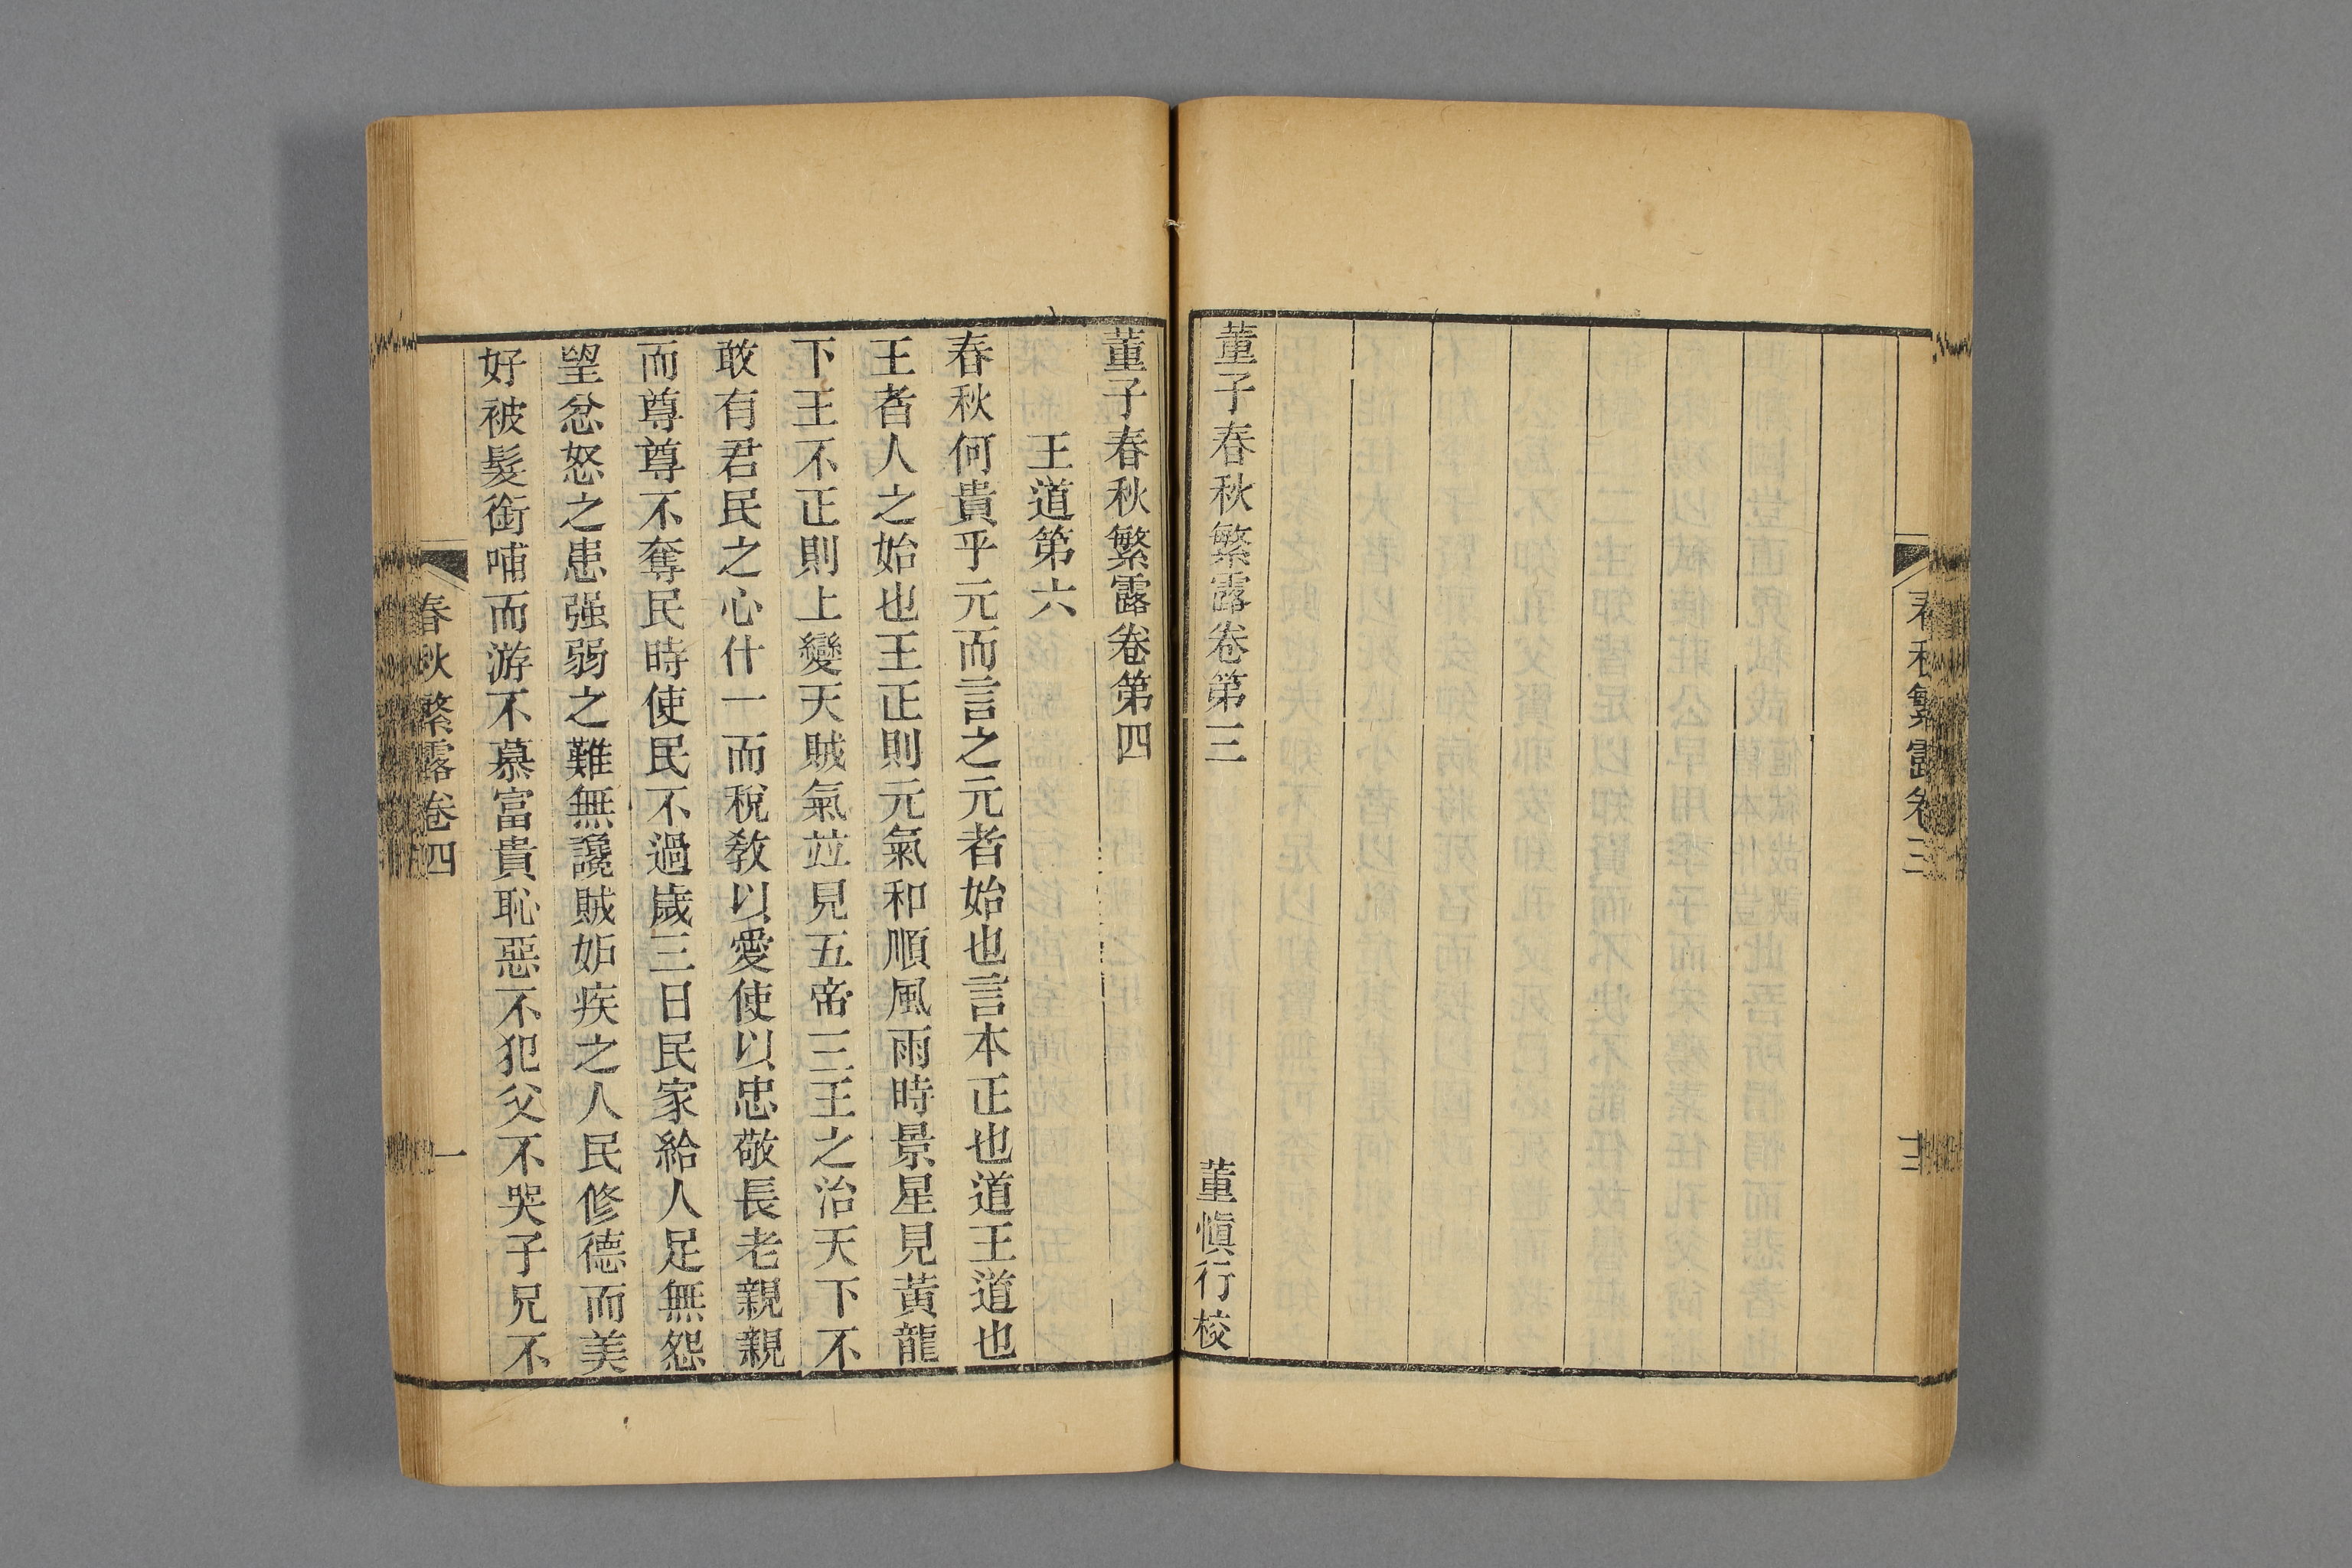 春秋繁露卷三
董子春秋繁露卷第三
董愼行校
董子春秋繁露卷第四
王道第六
春秋何貴乎元而言之元者始也言本正也道王道也
王者人之始也王正則元氣和順風雨時景星見黃龍
下王不正則上變天賊氣並見五帝三王之治天下不
敢有君民之心什一而稅敎以愛使以忠敬長老親親
而尊尊不奪民時使民不過歲三日民家給人足無怨
望忿怒之患强弱之難無讒賊妬疾之人民修德而美
好被髮銜哺而游不慕富貴恥惡不犯父不哭子兄不
春秋繁露卷四
一